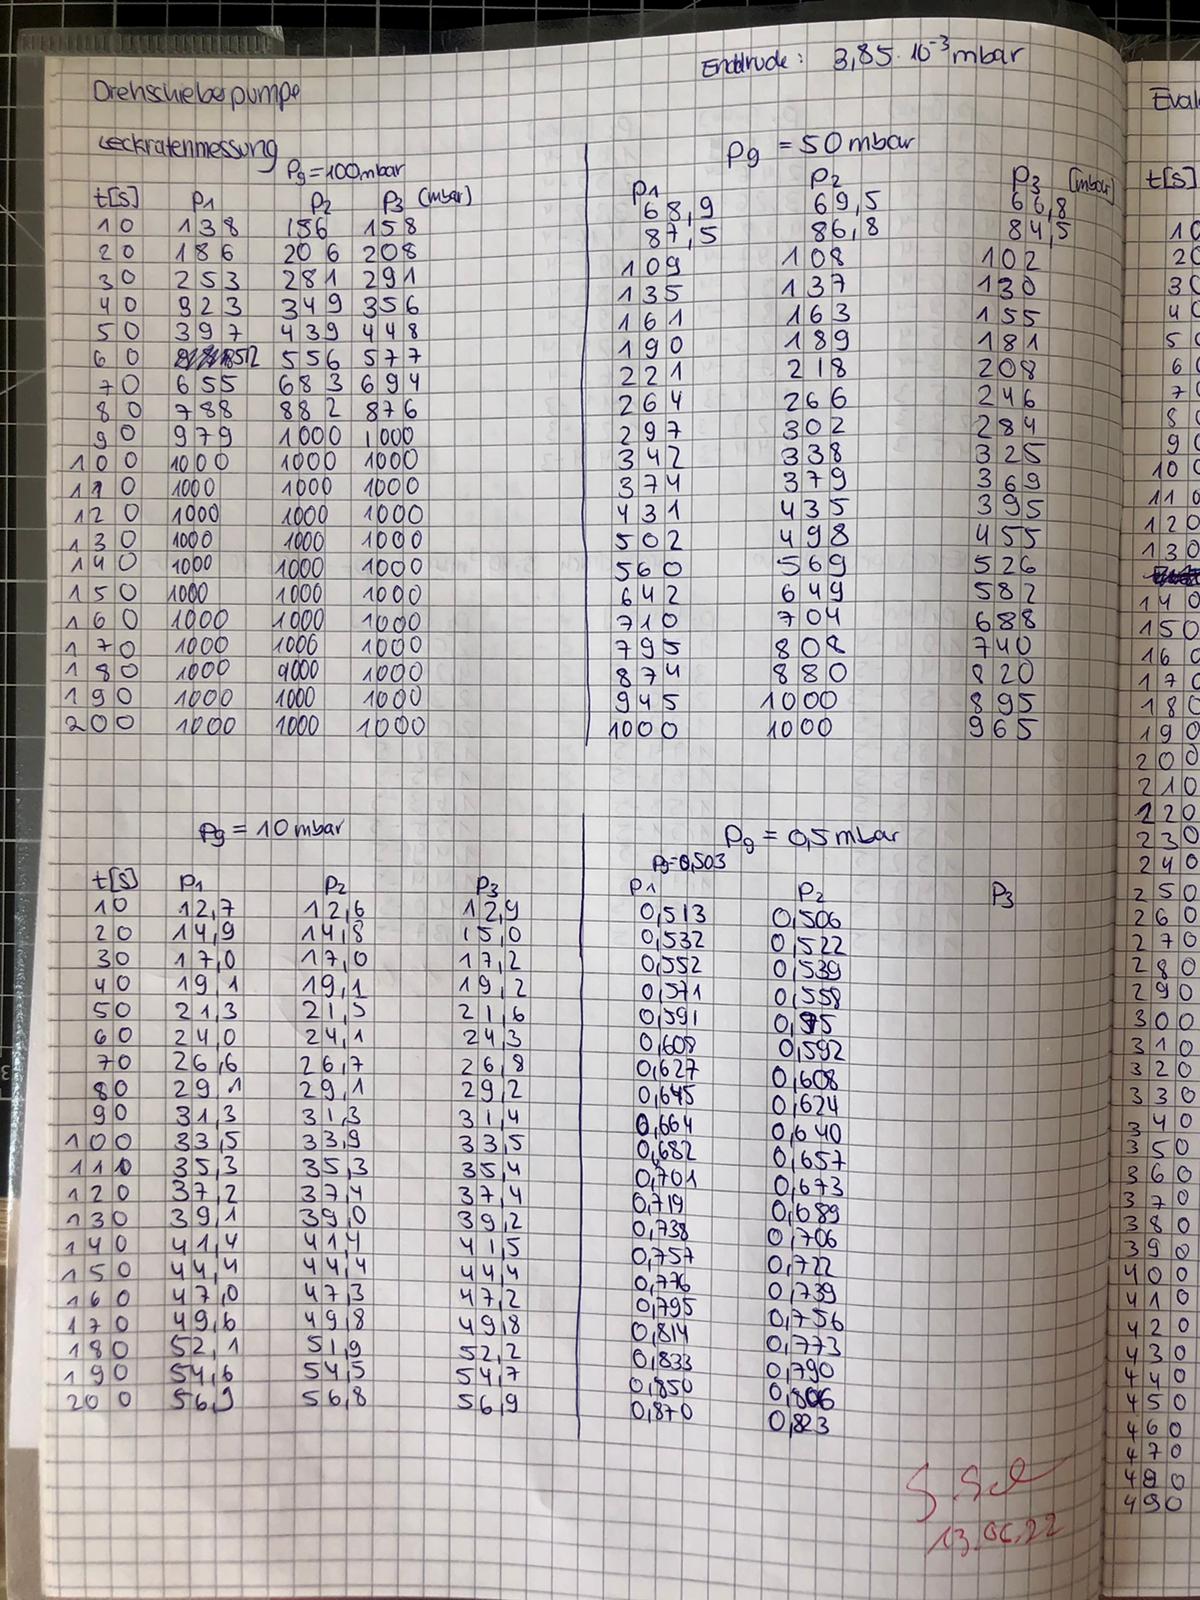 Enddruck: 3,85·10⁻³ mbar
Drehschieberpumpe
Leckratenmessung
pg = 100 mbar
t[S] p1 p2 p3 (mbar)
10 138 156 158
20 186 206 208
30 253 281 291
40 323 349 356
50 397 439 448
60 512 556 577
70 655 683 694
80 788 882 876
90 979 1000 1000
100 1000 1000 1000
110 1000 1000 1000
120 1000 1000 1000
130 1000 1000 1000
140 1000 1000 1000
150 1000 1000 1000
160 1000 1000 1000
170 1000 1000 1000
180 1000 1000 1000
190 1000 1000 1000
200 1000 1000 1000
pg = 50 mbar
p1 p2 p3 [mbar]
68,9 69,5 66,8
87,5 86,8 84,5
109 108 102
135 137 130
161 163 155
190 189 181
221 218 208
264 266 246
297 302 284
342 338 325
374 379 369
431 435 395
502 498 455
560 569 526
642 649 582
710 704 688
795 808 740
874 880 820
945 1000 895
1000 1000 965
pg = 10 mbar
t[S] p1 p2 p3
10 12,7 12,6 12,9
20 14,9 14,8 15,0
30 17,0 17,0 17,2
40 19,1 19,1 19,2
50 21,3 21,5 21,6
60 24,0 24,1 24,3
70 26,6 26,7 26,8
80 29,1 29,1 29,2
90 31,3 31,3 31,4
100 33,5 33,9 33,5
110 35,3 35,3 35,4
120 37,2 37,4 37,4
130 39,1 39,0 39,2
140 41,4 41,4 41,5
150 44,4 44,4 44,4
160 47,0 47,3 47,2
170 49,6 49,8 49,8
180 52,1 51,9 52,2
190 54,6 54,5 54,7
200 56,9 56,8 56,9
pg = 0,5 mbar
pg=0,503
p1 p2 p3
0,513 0,506
0,532 0,522
0,552 0,539
0,571 0,558
0,591 0,575
0,608 0,592
0,627 0,608
0,645 0,624
0,664 0,640
0,682 0,657
0,701 0,673
0,719 0,689
0,738 0,706
0,757 0,722
0,776 0,739
0,795 0,756
0,814 0,773
0,833 0,790
0,850 0,806
0,870 0,823
13.06.22
Eval
t[S]
10
20
30
40
50
60
70
80
90
100
110
120
130
140
150
160
170
180
190
200
210
220
230
240
250
260
270
280
290
300
310
320
330
340
350
360
370
380
390
400
410
420
430
440
450
460
470
480
490